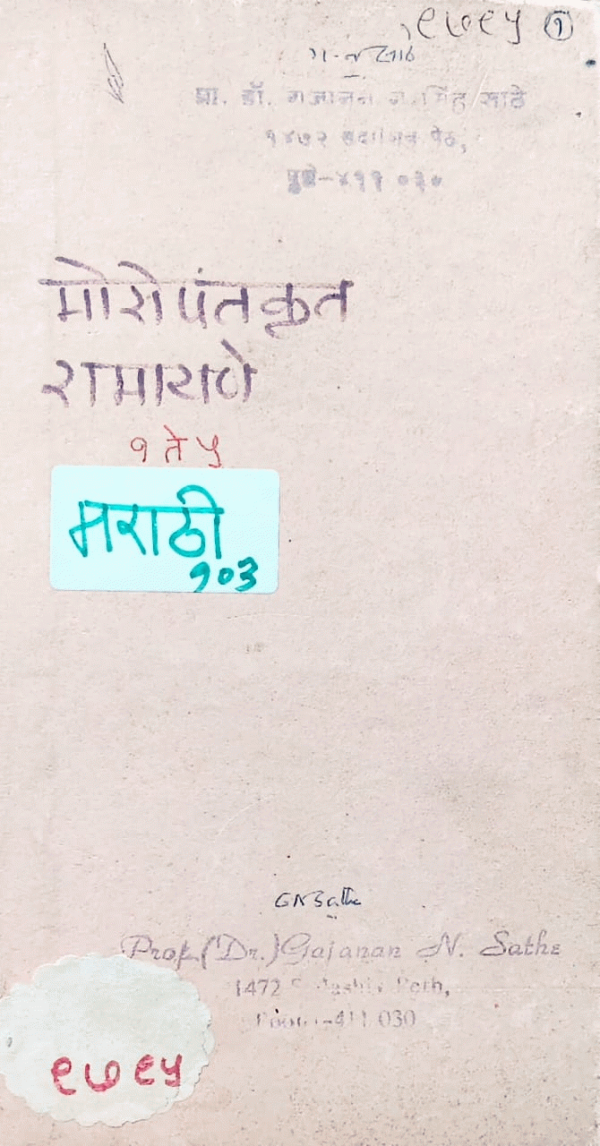 ९७९५ १
ग. न. साठे
प्रा. डॉ. गजानन नरसिंह साठे
१४७२ सदाशिव पेठ,
पुणे-४११ ०३०
मोरोपंतकृत
रामायणे
१ ते ५
मराठी
१०३
GNSathe
Prof.(Dr.)Gajanan N. Sathe
1472 Sadashiv Peth,
Poona-411 030
९७९५